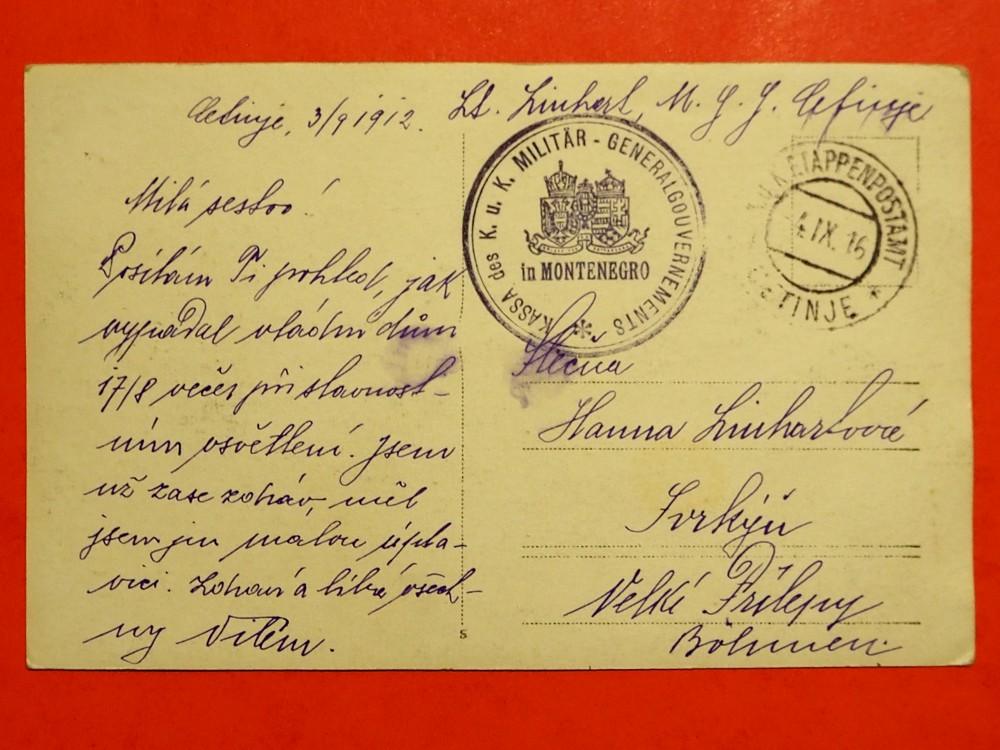 Cetinje, 3/9 1912.
Lt. Linhart, M. G. G. Cetinje
KASSA des K. u. K. MILITÄR-GENERALGOUVERNEMENTS
in MONTENEGRO
K.u.K. ETAPPENPOSTAMT
4.IX.16
CETINJE
Milá sestro!
Posílám Ti pohled, jak
vypadal vládní dům
17/8 večer při slavnost-
ním osvětlení. Jsem
už zase zdráv, měl
jsem jen malou úpla-
vici. Zdraví a líbá všech-
ny Vilém.
Slečna
Hanna Linhartová
Svrkýň
Velké Přílepy
Böhmen.
S